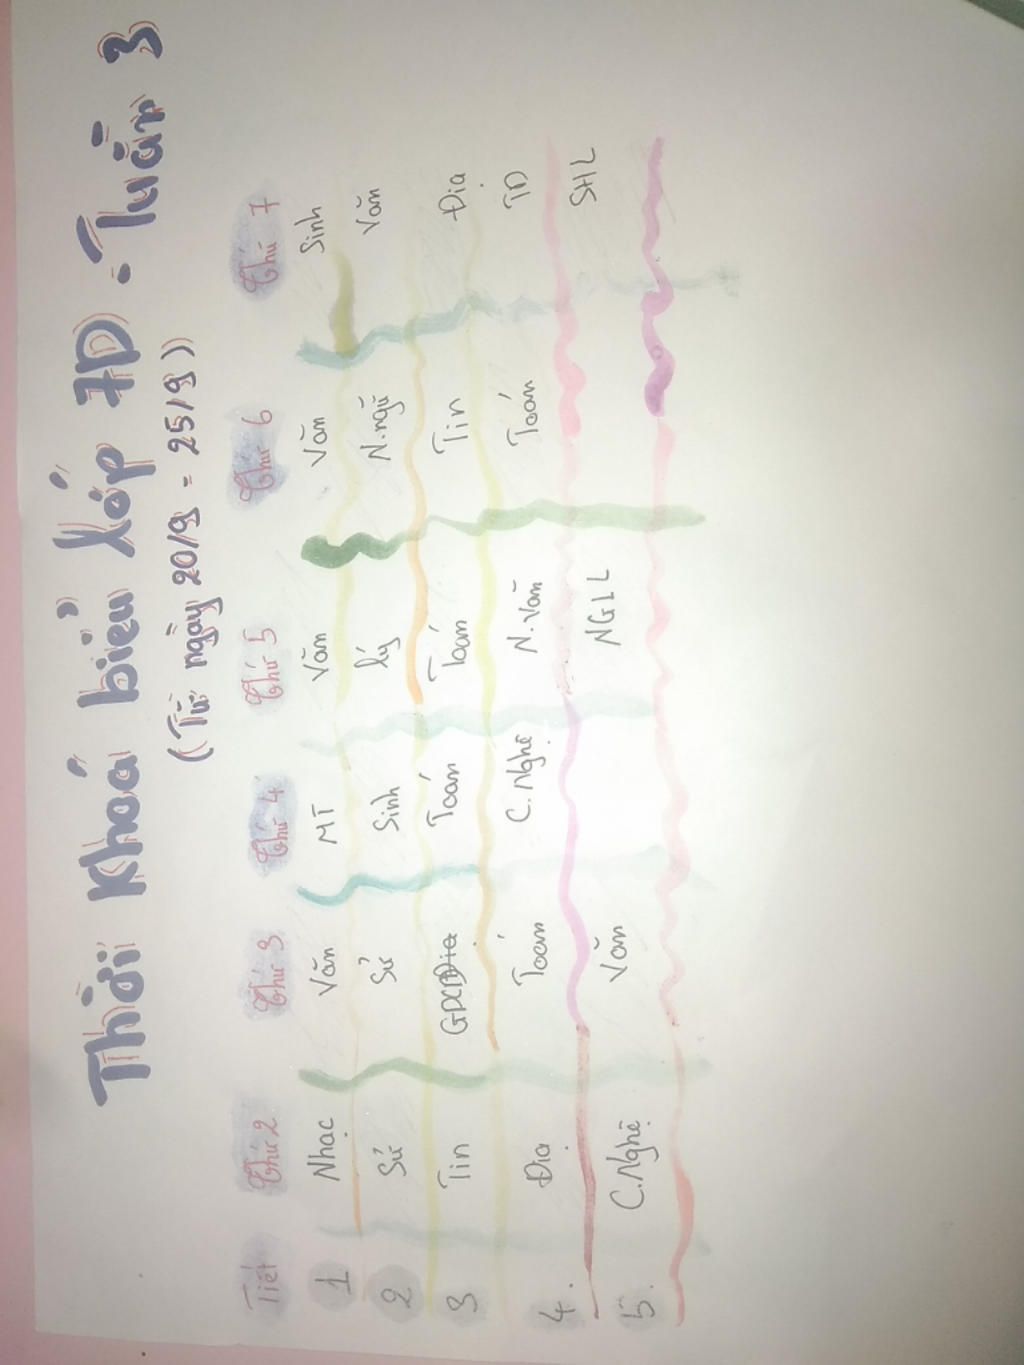 Thời Khoá biểu lớp 7D - Tuần 3
(Từ ngày 20/9 - 25/9)
Tiết Thứ 2 Thứ 3 Thứ 4 Thứ 5 Thứ 6 Thứ 7
1 Nhạc Văn MT Văn Văn Sinh
2 Sử Sử Sinh Lý N.ngữ Văn
3 Tin GDCD Toán Toán Tin Địa
4. Địa Toán C.Nghệ N.Văn Toán TD
5. C.Nghệ Văn NGLL SHL